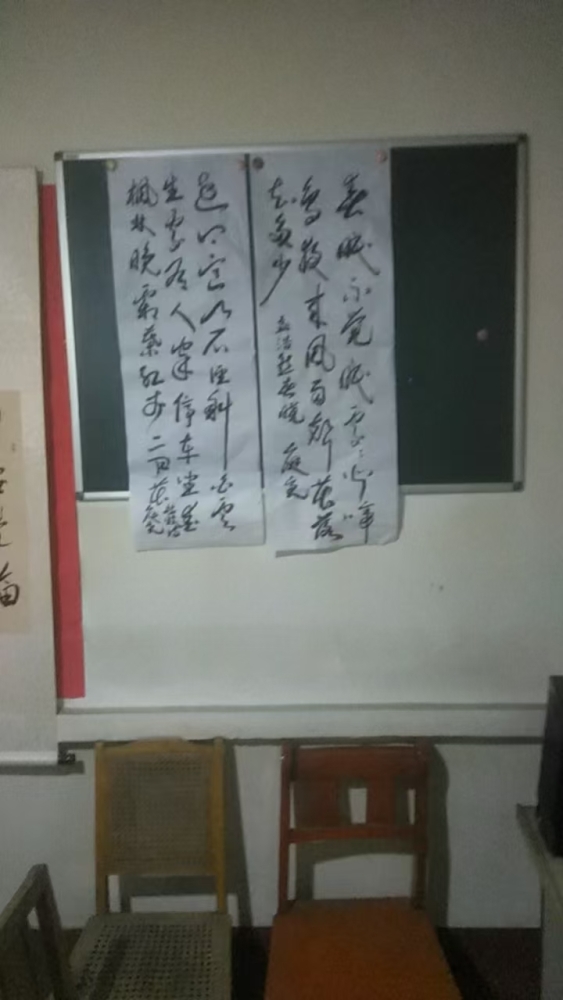 春眠不觉晓处々闻啼
鸟夜来风雨声花落
知多少
孟浩然春晓
远上寒山石径斜白云
生处有人家停车坐爱
枫林晚霜葉红于二月花